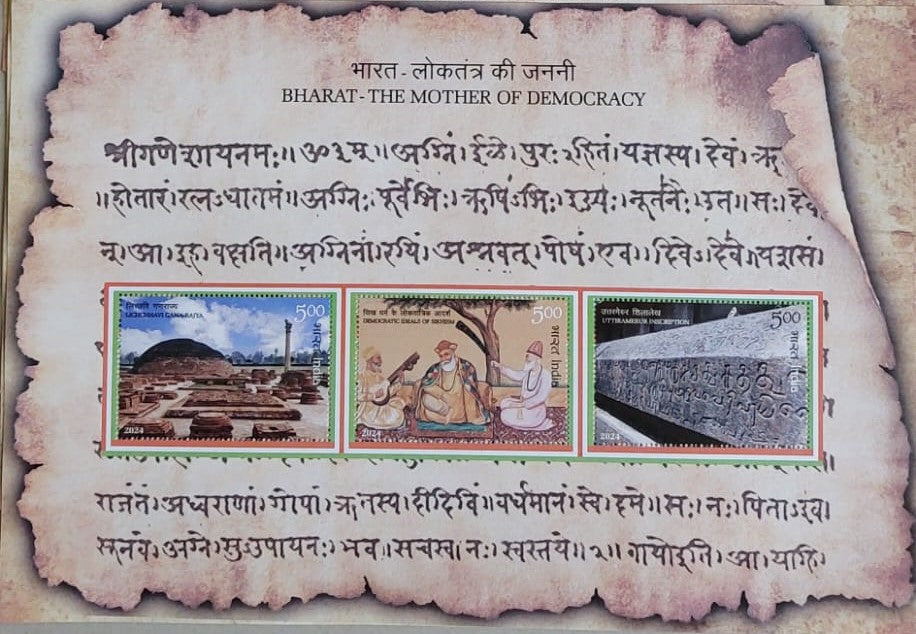 भारत - लोकतंत्र की जननी
BHARAT - THE MOTHER OF DEMOCRACY
श्रीगणेशायनमः॥ ॐ३म्॥ अग्निं। ईळे। पुरःऽहितं। यज्ञस्य। देवं। ऋ
॥होतारं। रत्नऽधातमं॥ अग्निः। पूर्वेभिः। ऋषिऽभिः। ईड्यः। नूतनैः। उत॥ सः। देवा
न्। आ। इह। वक्षति॥ अग्निना। रयिं। अश्नवत्। पोषं। एव॥ दिवेऽदिवे॥ यशसं।
लिच्छवि गणराज्य
LICHCHHAVI GANARAJYA
5.00
भारत India
2024
सिख धर्म के लोकतांत्रिक आदर्श
DEMOCRATIC IDEALS OF SIKHISM
5.00
भारत India
2024
उत्तरामेरुर शिलालेख
UTTIRAMERUR INSCRIPTION
5.00
भारत India
2024
राजंतं। अध्वराणां। गोपां। ऋतस्य। दीदिविं॥ वर्धमानं। स्वे। दमे॥ सः। नः। पिताऽइव।
सूनवे। अग्ने। सुऽउपायनः। भव॥ सचस्व। नः। स्वस्तये॥२॥ वायोइति। आ। याहि।